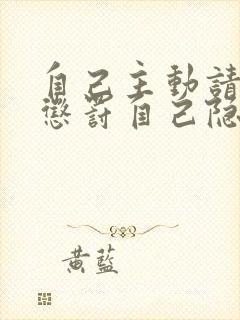 自己主動請
懲罰自己隐
黃藍